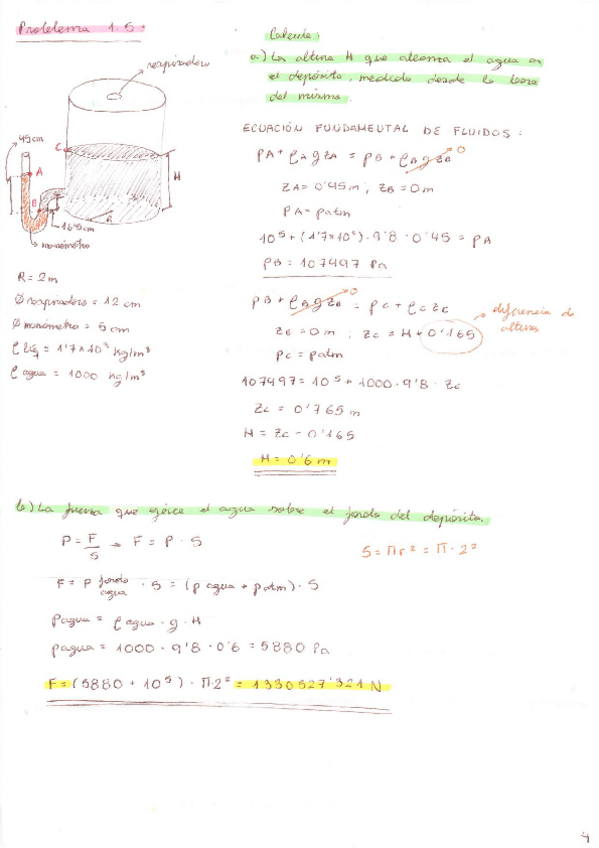 Problema 1.5.
respiradero
45 cm
A
C
B
H
R
16'5 cm
manómetro
R = 2 m
Ø respiradero = 12 cm
Ø manómetro = 5 cm
ρ liq = 1'7×10³ kg/m³
ρ agua = 1000 kg/m³
Calcule:
a) La altura H que alcanza el agua en
el depósito, medida desde la base
del mismo.
ECUACIÓN FUNDAMENTAL DE FLUIDOS:
pA + ρA g zA = pB + ρB g zB 0
zA = 0'45 m ; zB = 0 m
pA = patm
10⁵ + (1'7×10³) · 9'8 · 0'45 = pA
pB = 107497 Pa
pB + ρB g zB 0 = pC + ρC zC
zB = 0 m ; zC = H + 0'165
diferencia de
alturas
pC = patm
107497 = 10⁵ + 1000 · 9'8 · zC
zC = 0'765 m
H = zC - 0'165
H = 0'6 m
b) La fuerza que ejerce el agua sobre el fondo del depósito.
P = F/S → F = P · S
S = πr² = π · 2²
F = P fondo agua · S = (p agua + patm) · S
Pagua = ρ agua · g · H
pagua = 1000 · 9'8 · 0'6 = 5880 Pa
F = (5880 + 10⁵) · π · 2² = 1330527'321 N
4